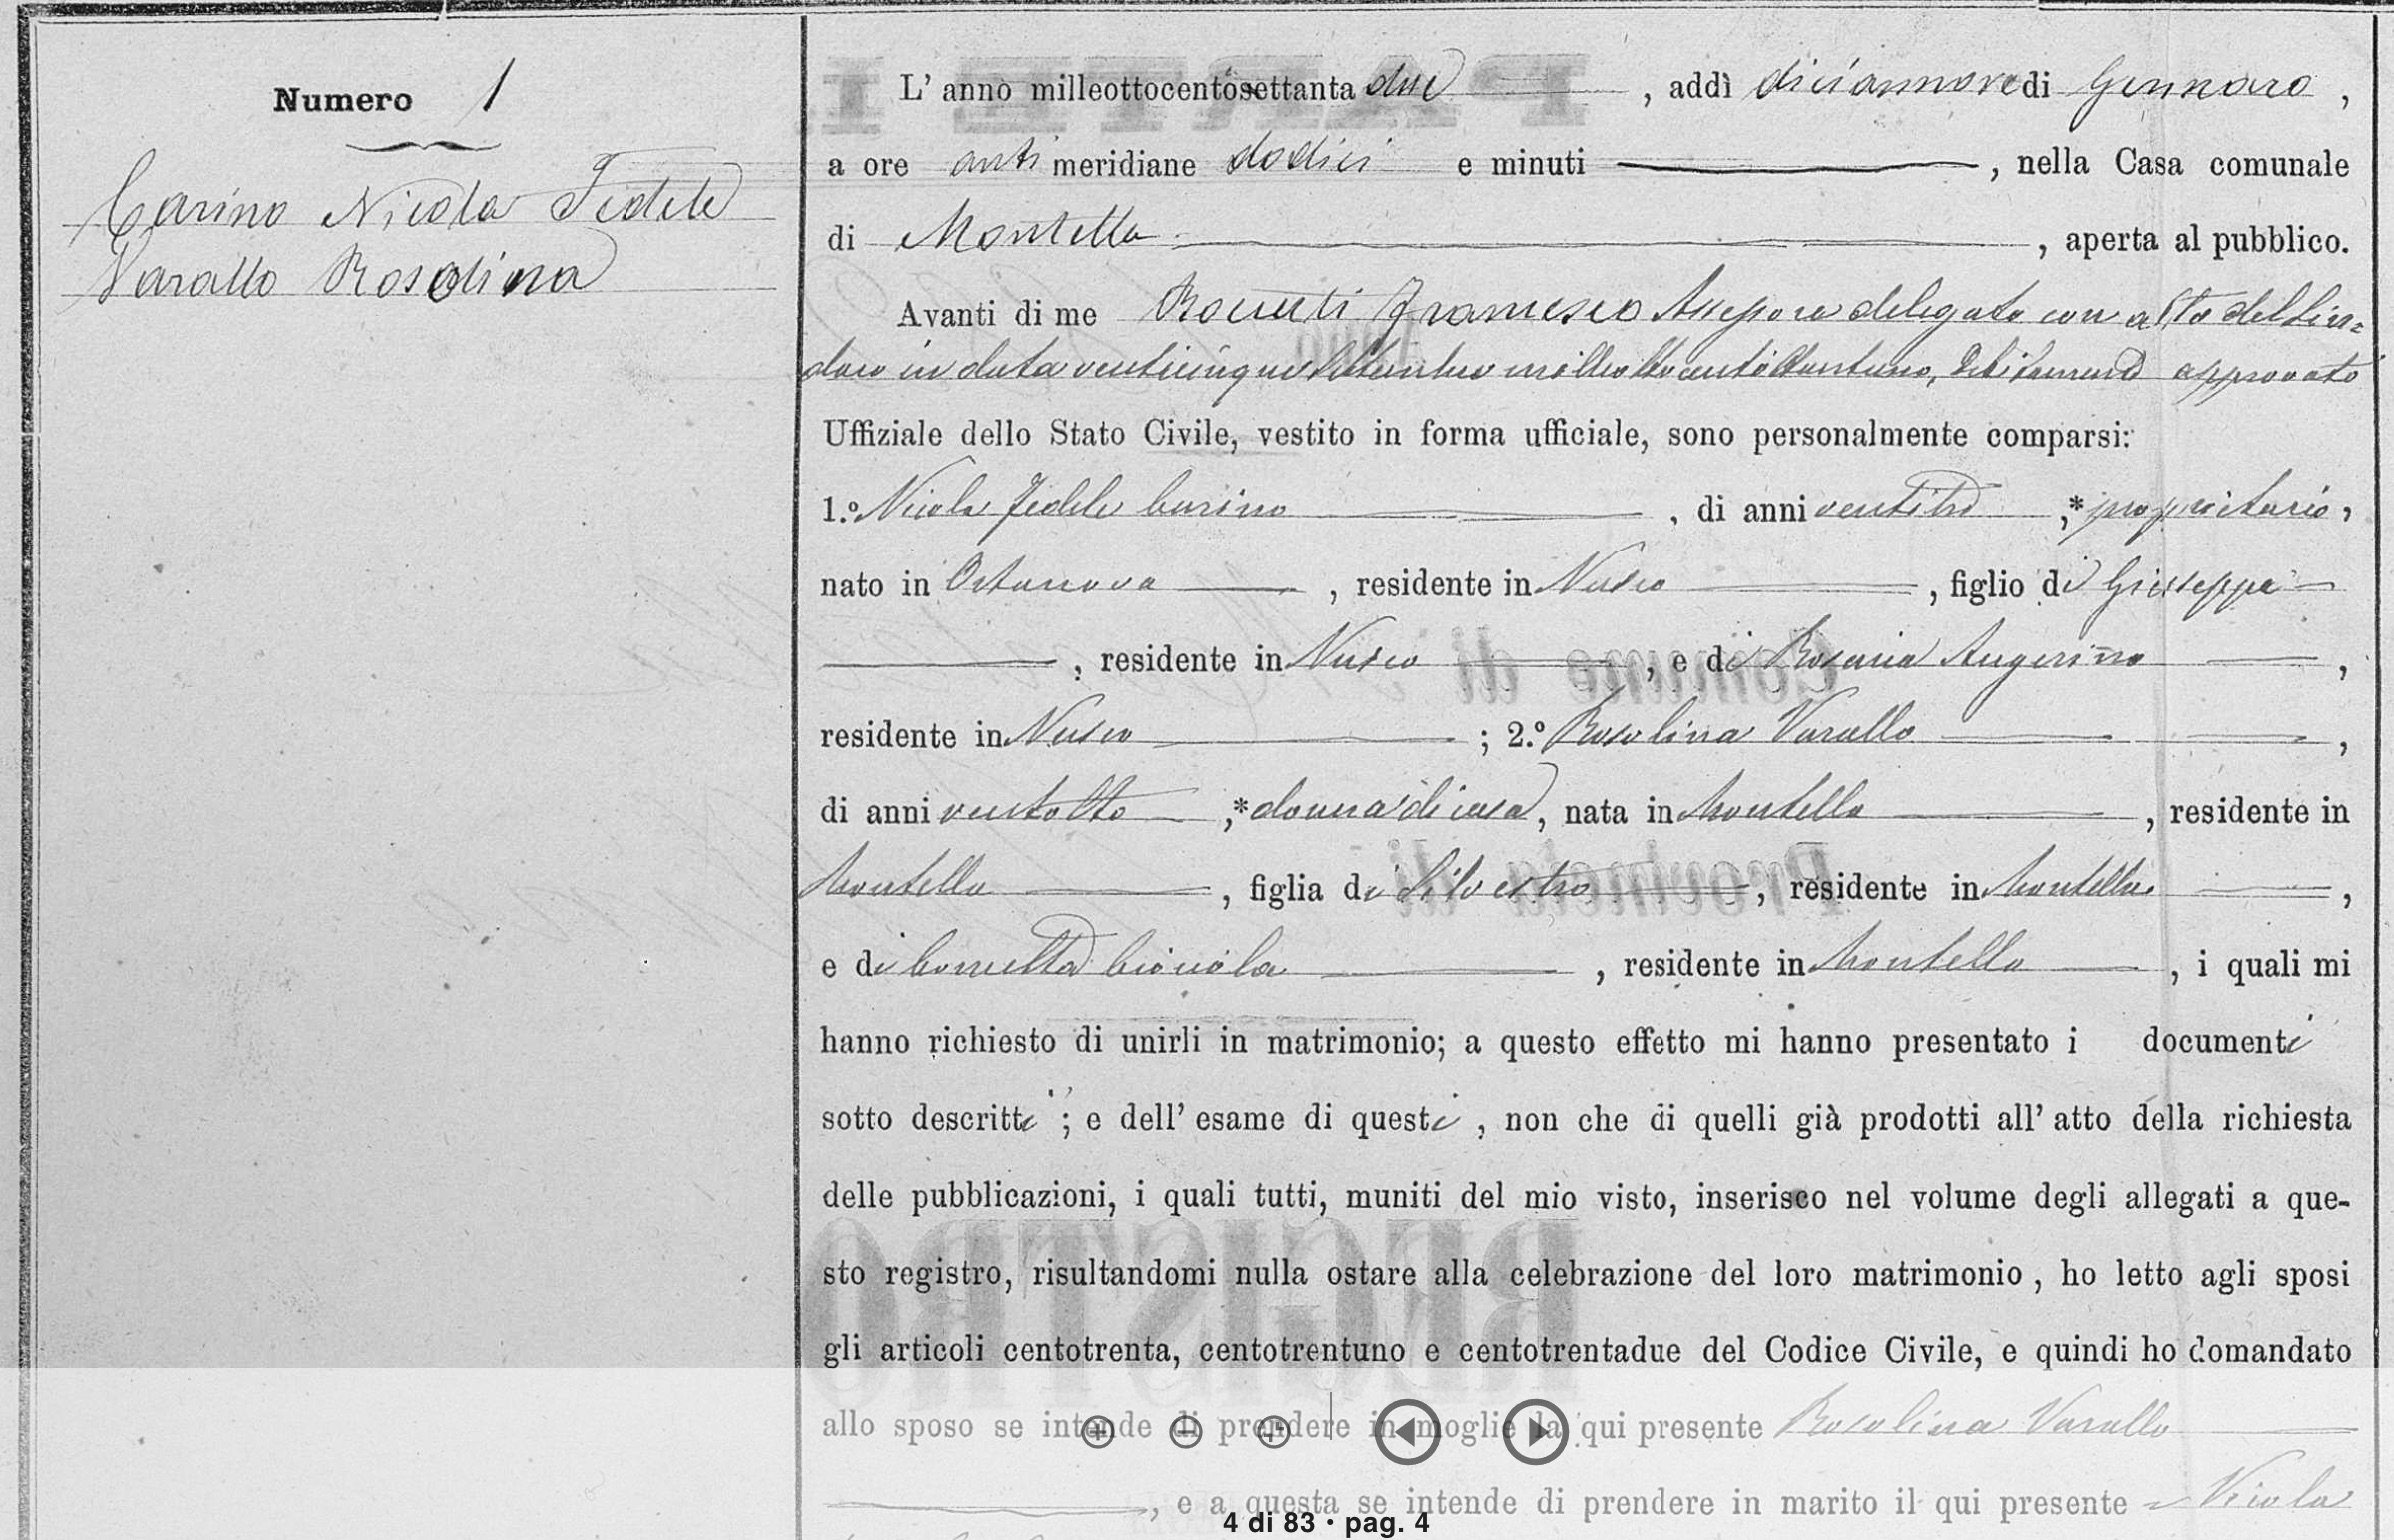 Numero 1
Carino Nicola Fedele
Varallo Rosolina
L' anno milleottocentosettanta due , addì diciannove di Gennaro ,
a ore anti meridiane dodici e minuti , nella Casa comunale
di Montella , aperta al pubblico.
Avanti di me Francesco Assessore delegato con atto del Sin=
daco in data venticinque Settembre milleottocentosettantuno, debitamente approvato
Uffiziale dello Stato Civile, vestito in forma ufficiale, sono personalmente comparsi:
1.º Nicola Fedele Carino , di anni , * proprietario ,
nato in Ortanova , residente in Nusco , figlio di Giuseppe
, residente in Nusco , e di Rosaria
residente in Nusco ; 2.º Rosolina Varallo ,
di anni ventotto , * donna di casa , nata in Montella , residente in
Montella , figlia di Silvestro , residente in Montella ,
e di , residente in Montella , i quali mi
hanno richiesto di unirli in matrimonio; a questo effetto mi hanno presentato i documenti
sotto descritti ; e dell' esame di questi , non che di quelli già prodotti all' atto della richiesta
delle pubblicazioni, i quali tutti, muniti del mio visto, inserisco nel volume degli allegati a que-
sto registro, risultandomi nulla ostare alla celebrazione del loro matrimonio , ho letto agli sposi
gli articoli centotrenta, centotrentuno e centotrentadue del Codice Civile, e quindi ho domandato
allo sposo se intende di prendere in moglie la qui presente Rosolina Varallo
, e a questa se intende di prendere in marito il qui presente Nicola
4 di 83 • pag. 4